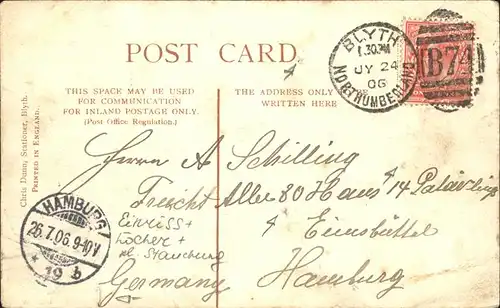 POST CARD.
THIS SPACE MAY BE USED
FOR COMMUNICATION
FOR INLAND POSTAGE ONLY.
(Post Office Regulation.)
THE ADDRESS ONLY
WRITTEN HERE
BLYTH
1.30PM
JY 24
06
NORTHUMBERLAND
B74
Chris Dunn, Stationer, Blyth.
PRINTED IN ENGLAND.
Herrn A Schilling
Allee 80 Haus 14
Eimsbüttel
Hamburg
Germany
Einriss +
Löcher +
kl. Stauchung
HAMBURG
26.7.06. 9-10V
* 19 b